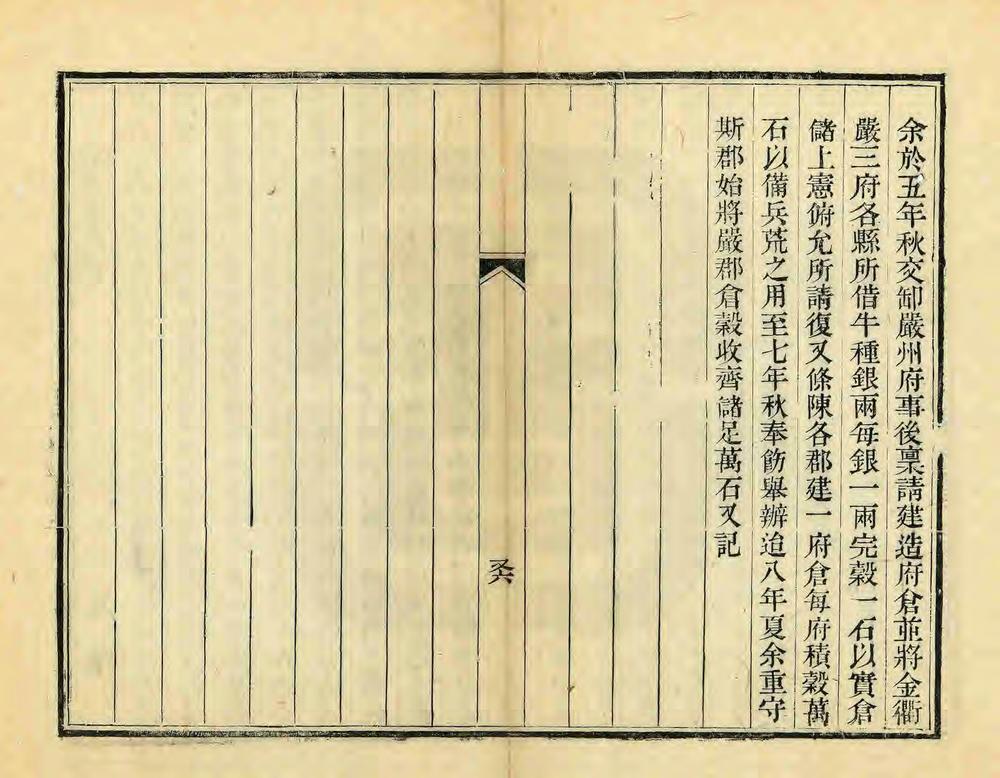 余於五年秋交卸嚴州府事後稟請建造府倉並將金衢
嚴三府各縣所借牛種銀兩每銀一兩完穀一石以實倉
儲上憲俯允所請復又條陳各郡建一府倉每府積穀萬
石以備兵荒之用至七年秋奉飭舉辦迨八年夏余重守
斯郡始將嚴郡倉穀收齊儲足萬石又記
又六